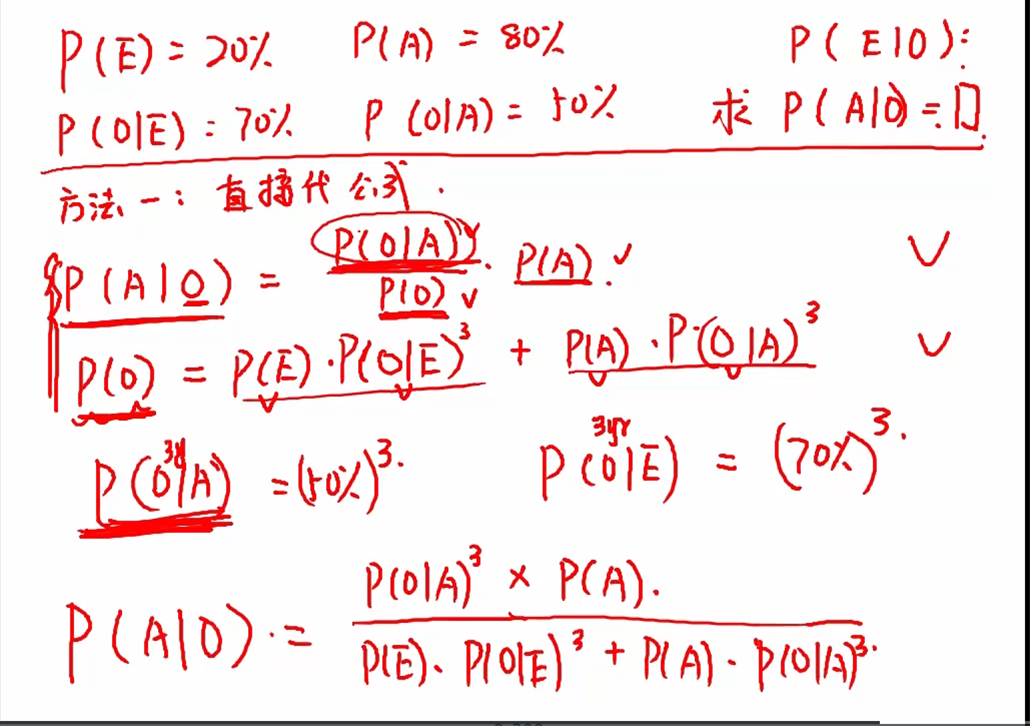 P(E) = 20% P(A) = 80% P(E|O):
P(O|E) = 70% P(O|A) = 50% 求 P(A|O) = [].
方法一: 直接代公式.
P(A|O) = P(O|A) / P(O) · P(A)
P(O) = P(E)·P(O|E)³ + P(A)·P(O|A)³
P(O^{3y}|A) = (50%)³. P(O^{3yr}|E) = (70%)³.
P(A|O) = P(O|A)³ × P(A). / P(E)·P(O|E)³ + P(A)·P(O|A)³.